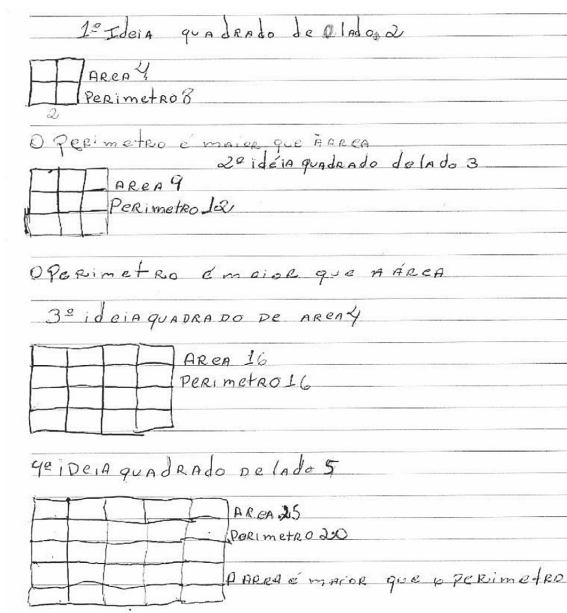 1º Ideia quadrado de lado 2
Area 4
Perimetro 8
2
O Perimetro é maior que a area
2º idéia quadrado de lado 3
Area 9
Perimetro 12
O Perimetro é maior que a Área
3º ideia quadrado de area 4
Area 16
Perimetro 16
4º ideia quadrado de lado 5
Area 25
Perimetro 20
A area é maior que o perimetro